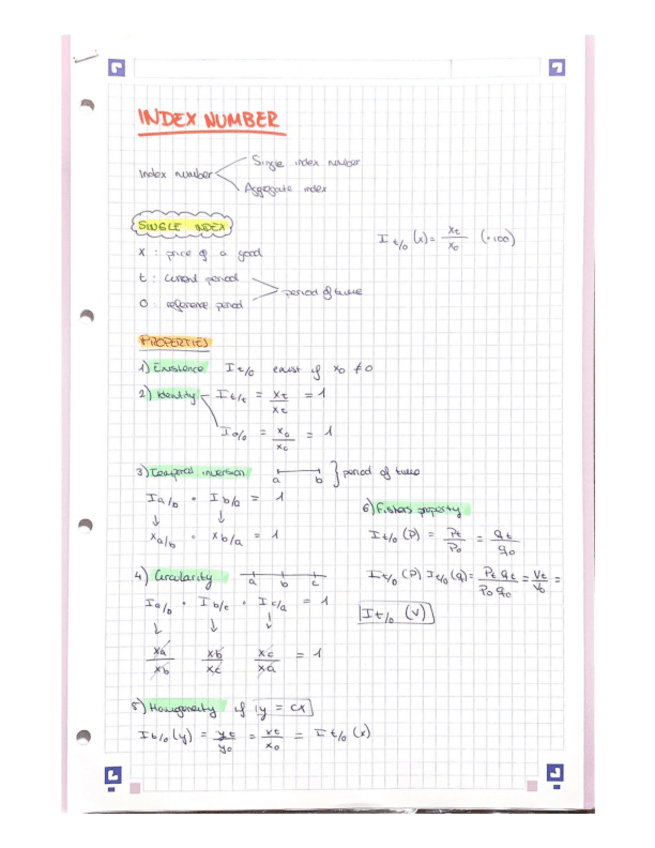 INDEX NUMBER
Index number
Single index number
Aggregate index
SINGLE INDEX
I t/0 (x) = xt/x0 (·100)
x : price of a good
t : current period
0 : reference period
period of time
PROPERTIES
1) Existence I t/0 exist if x0 ≠ 0
2) Identity I t/t = xt/xt = 1
I 0/0 = x0/x0 = 1
3) Temporal inversion a b } period of time
I a/b · I b/a = 1
↓ ↓
xa/b · xb/a = 1
4) Circularity a b c
I a/b · I b/c · I c/a = 1
↓ ↓ ↓
xa/xb xb/xc xc/xa = 1
5) Homogeneity if y = cx
I t/0 (y) = yt/y0 = xt/x0 = I t/0 (x)
6) Fishers property
I t/0 (P) = Pt/P0 = qt/q0
I t/0 (P) I t/0 (q) = Pt qt/P0 q0 = Vt/V0 =
I t/0 (V)